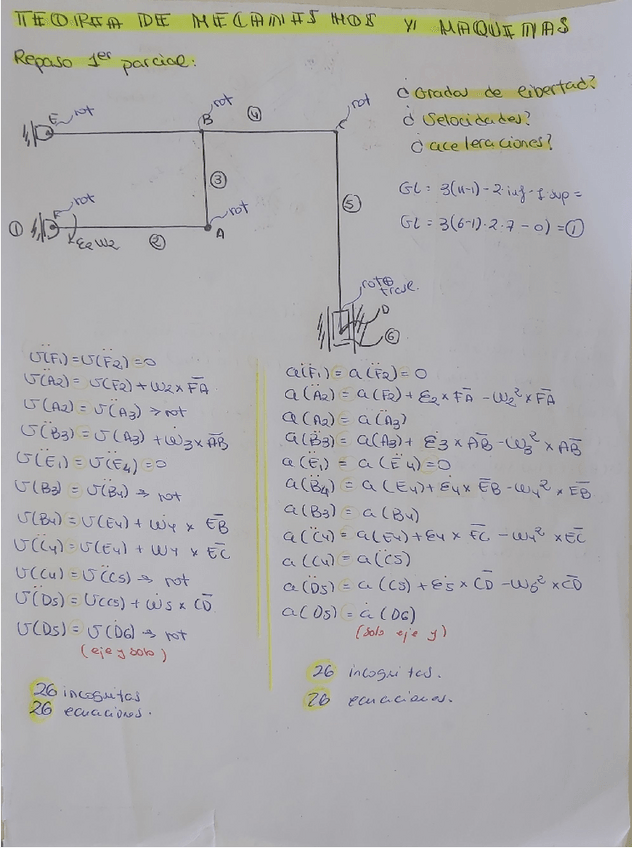 TEORIA DE MECANISMOS Y MAQUINAS
Repaso 1er parcial:
E rot
B rot
④
C rot
③
⑤
① F rot
ε2 ω2
②
A rot
rot ⊕
D
⑥
¿Grados de libertad?
¿Velocidades?
¿aceleraciones?
GL = 3(n-1) - 2·inf - 1·sup =
GL = 3(6-1) - 2·7 - 0) = ①
v(F1) = v(F2) = 0
v(A2) = v(F2) + ω2 x FA
v(A2) = v(A3) → rot
v(B3) = v(A3) + ω3 x AB
v(E1) = v(E4) = 0
v(B3) = v(B4) → rot
v(B4) = v(E4) + ω4 x EB
v(C4) = v(E4) + ω4 x EC
v(C4) = v(C5) → rot
v(D5) = v(C5) + ω5 x CD
v(D5) = v(D6) → rot
(eje y solo)
26 incognitas
26 ecuaciones.
a(F1) = a(F2) = 0
a(A2) = a(F2) + ε2 x FA - ω2² x FA
a(A2) = a(A3)
a(B3) = a(A3) + ε3 x AB - ω3² x AB
a(E1) = a(E4) = 0
a(B4) = a(E4) + ε4 x EB - ω4² x EB
a(B3) = a(B4)
a(C4) = a(E4) + ε4 x EC - ω4² x EC
a(C4) = a(C5)
a(D5) = a(C5) + ε5 x CD - ω5² x CD
a(D5) = a(D6)
(solo eje y)
26 incognitas.
26 ecuaciones.